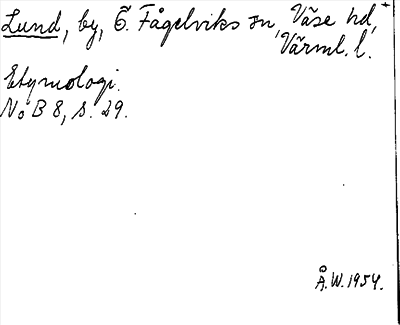 Lund, by, Ö. Fågelviks sn, Väse hd, +
Värml. l.
Etymologi.
NoB 8, s. 29.
Å.W. 1954.